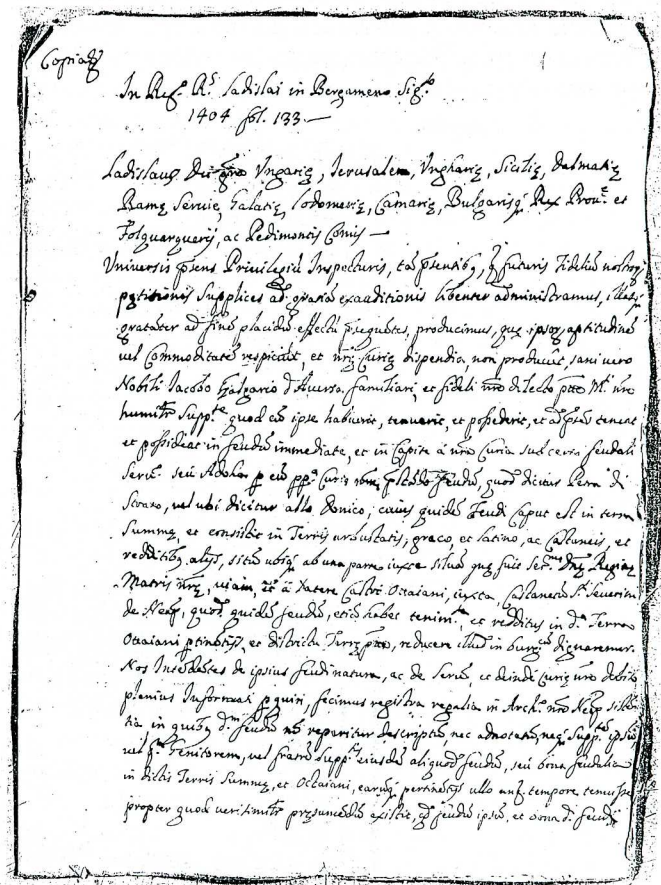 Copia
In Reg.º R.s Ladislai in Bergameno Sig.to
1404 fol. 133.—
Ladislaus Dei grã Ungarię, Jerusalem, Ungharię, Sicilię, Dalmatię
Ramę Servie, Galatię, Lodomerię, Camarię, Bulgarisq Rex Prou.e et
Folquarquerij, ac Pedimontis Comis —
Universis p̃sens Privilegiũ Inspecturis, tã p̃sentibq, q̃ futuris Fideliũ nostroq
pętitionis Supplices ad gratiã exauditionis libenter administramus, illasq
gratanter ad finẽ placidũ effectũ p̃sequẽtes, producimus, quę ipsoq aptitudinẽ
vel Commoditatẽ respiciũt, et nrę Curię dispendia, non producũt, sanè vero
Nobili Iacobo Gasgario d'Aversa familiari, et fideli nrõ dilecto M.ti nrę
humilr̃ Supp.te quod cũ ipse habuerit, tenuerit, et possederit, et ad p̃sens teneat
et possideat in feudũ immediate, et in Capite à nrã Curia sub feudali
Serv.º seu Adoha p eũ Curię feudũ, quod dicitur Perra di
Scoaro, vel ubi dicitur allo Domico; cuius quidẽ Feudi Caput est in terra
Summę, et consistit in Terris arbustatis, greco, et latino, ac Castaneis, et
redditibq alijs, sitũ ubiq ab una parte iuxta Silvã quę fuit Ser.me Dnę Reginę
Matris nrę, viam, à latere Castri Octaiani, iuxta Castanetũ S.ti Severini
de Neap. quod quidẽ feudũ, etiã habet tenim.ta, et redditus in d.ª Terra
Octaiani p̃tinentijs, et districtu Terrę reducere illud in burg.cũ dignaremur.
Nos Intendẽtes de ipsius feudi natura, ac de Serv.º, et deinde Curię nrę debito
plenius Informati p̃quiri, fecimus registra regalia in Arch.º nrõ Neap
in quibq d.m feudũ nõ reperitur descriptũ, nec adnotatũ, neq Supp.tẽ ipsũ,
vel Genitorem, vel fratrẽ Supp.tis eiusdẽ aliquod feudũ, seu bona feudalia
in dictis Terris Summę, et Octaiani, earũq pertinẽtijs ullo unq̃ tempore tenuisse
propter quod verisimilr̃ pręsumendũ existit, q̃d feudũ ipsũ, et bona d.i feudi